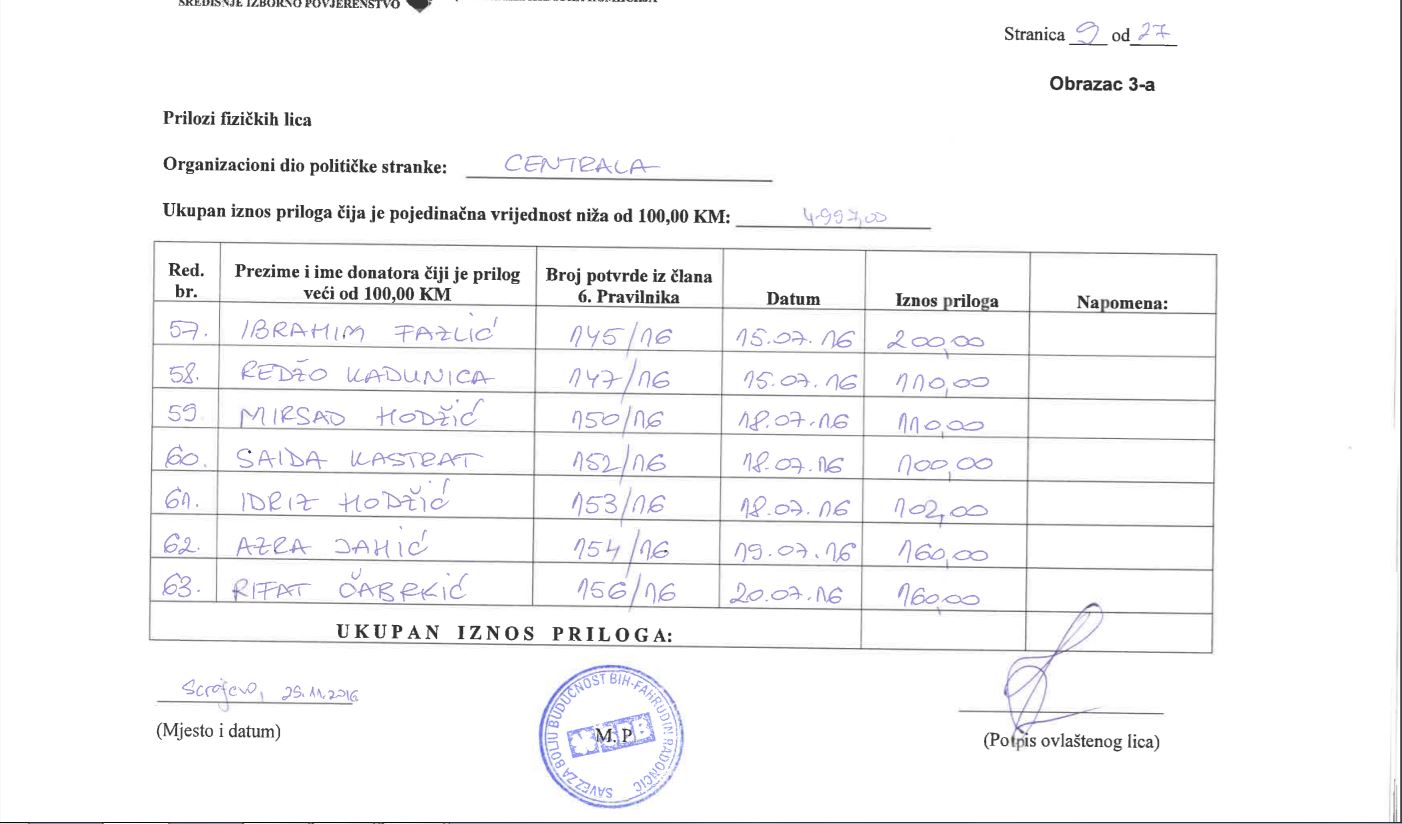 SREDIŠNJE IZBORNO POVJERENSTVO
Stranica 9 od 27
Obrazac 3-a
Prilozi fizičkih lica
Organizacioni dio političke stranke: CENTRALA
Ukupan iznos priloga čija je pojedinačna vrijednost niža od 100,00 KM: 4997,00
Red. br. Prezime i ime donatora čiji je prilog veći od 100,00 KM Broj potvrde iz člana 6. Pravilnika Datum Iznos priloga Napomena:
57. IBRAHIM FAZLIĆ 145/16 15.07.16 200,00
58. REDŽO KADUNICA 147/16 15.07.16 110,00
59. MIRSAD HODŽIĆ 150/16 18.07.16 110,00
60. SAIDA KASTRAT 152/16 18.07.16 100,00
61. IDRIZ HODŽIĆ 153/16 18.07.16 102,00
62. AZRA DAHIĆ 154/16 19.07.16 160,00
63. RIFAT ČABRKIĆ 156/16 20.07.16 160,00
UKUPAN IZNOS PRILOGA:
Sarajevo, 25.11.2016
(Mjesto i datum)
SAVEZ ZA BOLJU BUDUĆNOST BIH-FAHRUDIN RADONČIĆ
SBB
M.P.
(Potpis ovlaštenog lica)